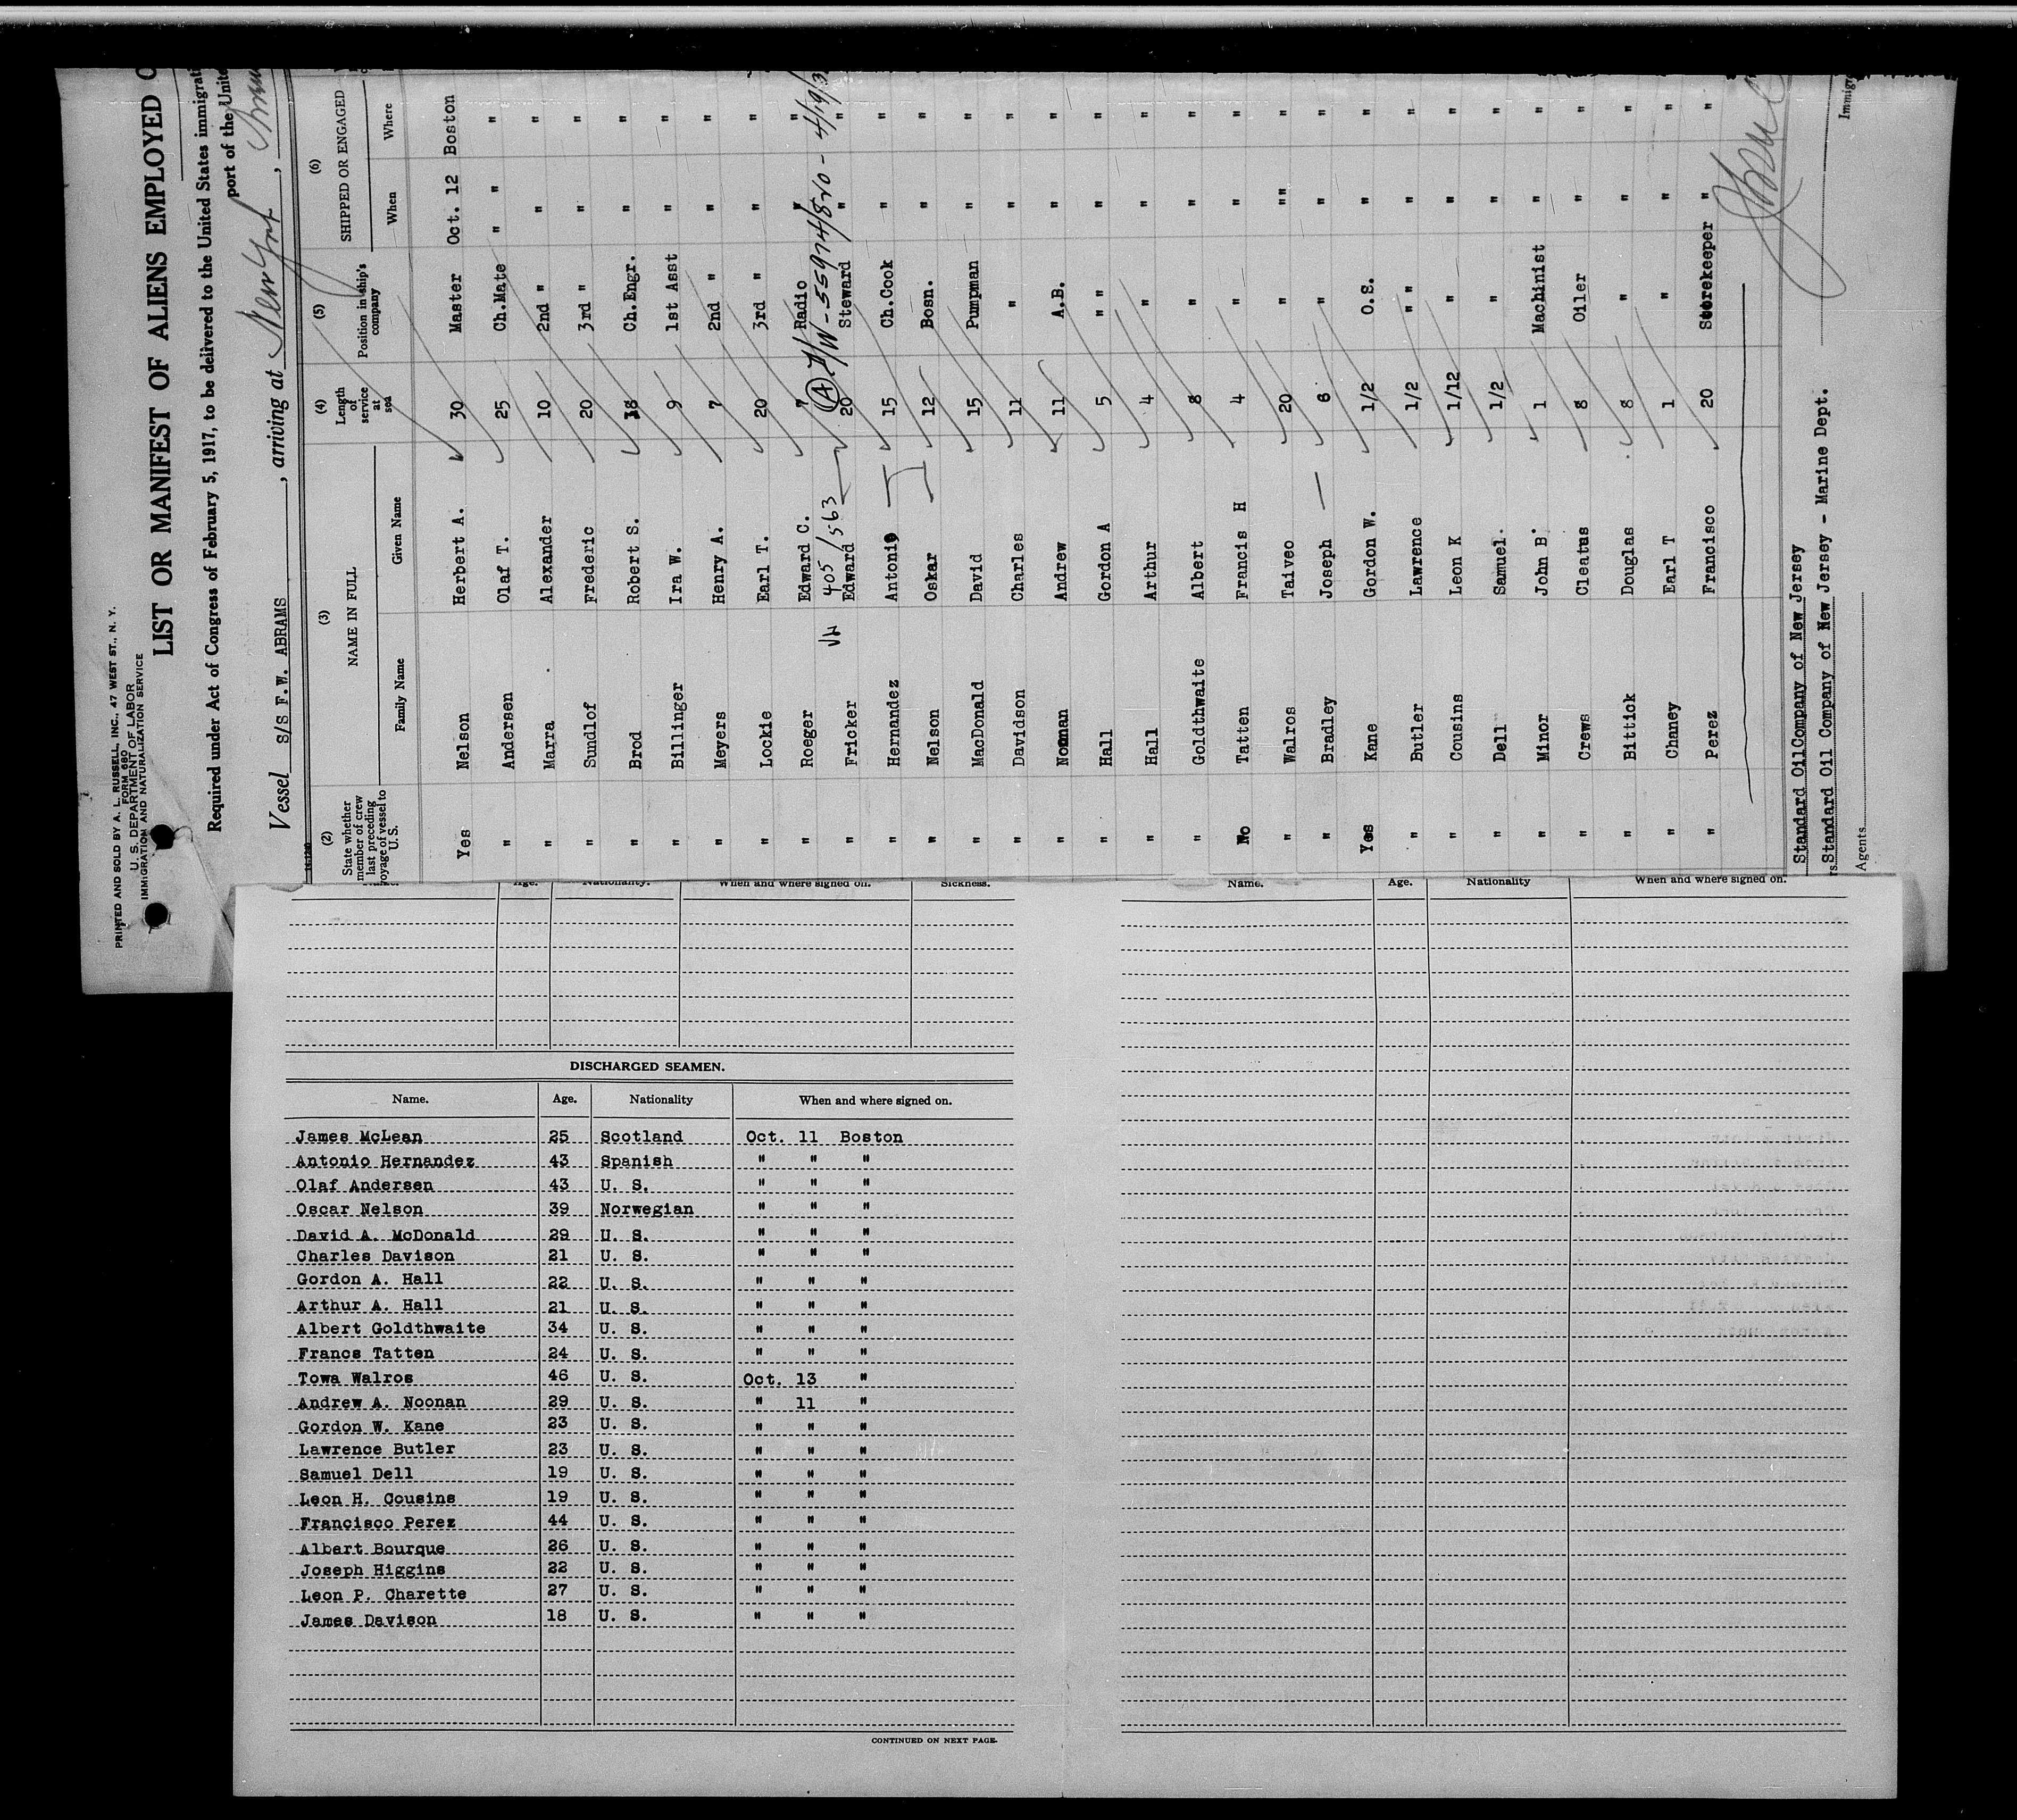 PRINTED AND SOLD BY A. L. RUSSELL, INC., 47 WEST ST., N. Y.
FORM 680
U. S. DEPARTMENT OF LABOR
IMMIGRATION AND NATURALIZATION SERVICE
LIST OR MANIFEST OF ALIENS EMPLOYED O
Required under Act of Congress of February 5, 1917, to be delivered to the United States immigrati
port of the Unite
Vessel S/S F.W. ABRAMS, arriving at New York,
(2) (3) (4) (5) (6)
State whether member of crew last preceding voyage of vessel to U.S. NAME IN FULL Length of service at sea Position in ship's company SHIPPED OR ENGAGED
Family Name Given Name When Where
Yes Nelson Herbert A. 30 Master Oct. 12 Boston
" Andersen Olaf T. 25 Ch.Mate " " "
" Marra Alexander 10 2nd " " "
" Sundlof Frederic 20 3rd " " "
" Brod Robert S. Ch.Engr. " "
" Billinger Ira W. 9 1st Asst " "
" Meyers Henry A. 7 2nd " " "
" Lockie Earl T. 20 3rd " " "
" Roeger Edward C. 7 Radio " "
405/563 (A) 4/19/3
" Fricker Edward 20 Steward " "
" Hernandez Antonio 15 Ch.Cook " "
" Nelson Oskar 12 Bosn. " "
" MacDonald David 15 Pumpman " "
" Davidson Charles 11 " " "
" Noonan Andrew 11 A.B. " "
" Hall Gordon A 5 " " " "
" Hall Arthur 4 " " "
" Goldthwaite Albert 8 " " "
No Tatten Francis H 4 " " "
" Walros Taiveo 20 " "" "
" Bradley Joseph 6 " " "
Yes Kane Gordon W. 1/2 O.S. " "
" Butler Lawrence 1/2 " " " "
" Cousins Leon K 1/12 " " "
" Dell Samuel. 1/2 " " "
" Minor John B. 1 Machinist " "
" Crews Cleatus 8 Oiler " "
" Bittick Douglas 8 " " "
" Chaney Earl T 1 " " "
" Perez Francisco 20 Storekeeper " "
Standard OilCompany of New Jersey
Standard Oil Company of New Jersey - Marine Dept.
Agents
Immigr
Name. Age. Nationality. When and where signed on. Sickness.
DISCHARGED SEAMEN.
Name. Age. Nationality When and where signed on.
James McLean 25 Scotland Oct. 11 Boston
Antonio Hernandez 43 Spanish " " "
Olaf Andersen 43 U. S. " " "
Oscar Nelson 39 Norwegian " " "
David A. McDonald 29 U. S. " " "
Charles Davison 21 U. S. " " "
Gordon A. Hall 22 U. S. " " "
Arthur A. Hall 21 U. S. " " "
Albert Goldthwaite 34 U. S. " " "
Francs Tatten 24 U. S. " " "
Towa Walros 46 U. S. Oct. 13 "
Andrew A. Noonan 29 U. S. " 11 "
Gordon W. Kane 23 U. S. " " "
Lawrence Butler 23 U. S. " " "
Samuel Dell 19 U. S. " " "
Leon H. Cousins 19 U. S. " " "
Francisco Perez 44 U. S. " " "
Albert Bourque 26 U. S. " " "
Joseph Higgins 22 U. S. " " "
Leon P. Charette 27 U. S. " " "
James Davison 18 U. S. " " "
CONTINUED ON NEXT PAGE.
Name. Age. Nationality When and where signed on.